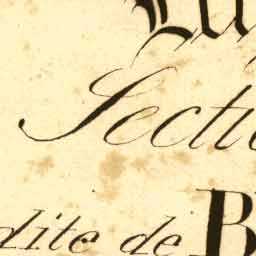 Secti
dite de B